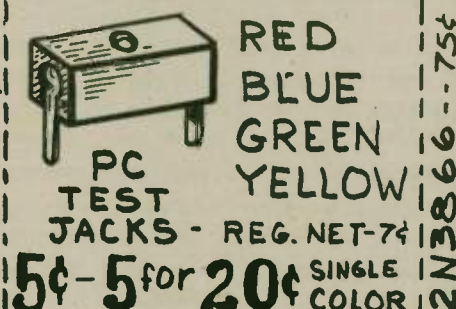 6
RED
BLUE
GREEN
YELLOW
PC
TEST
JACKS - REG. NET-7¢
5¢-5 for 20¢ SINGLE
COLOR
2N3866--75¢